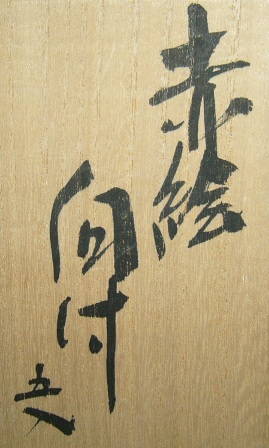 赤絵
向付
五人